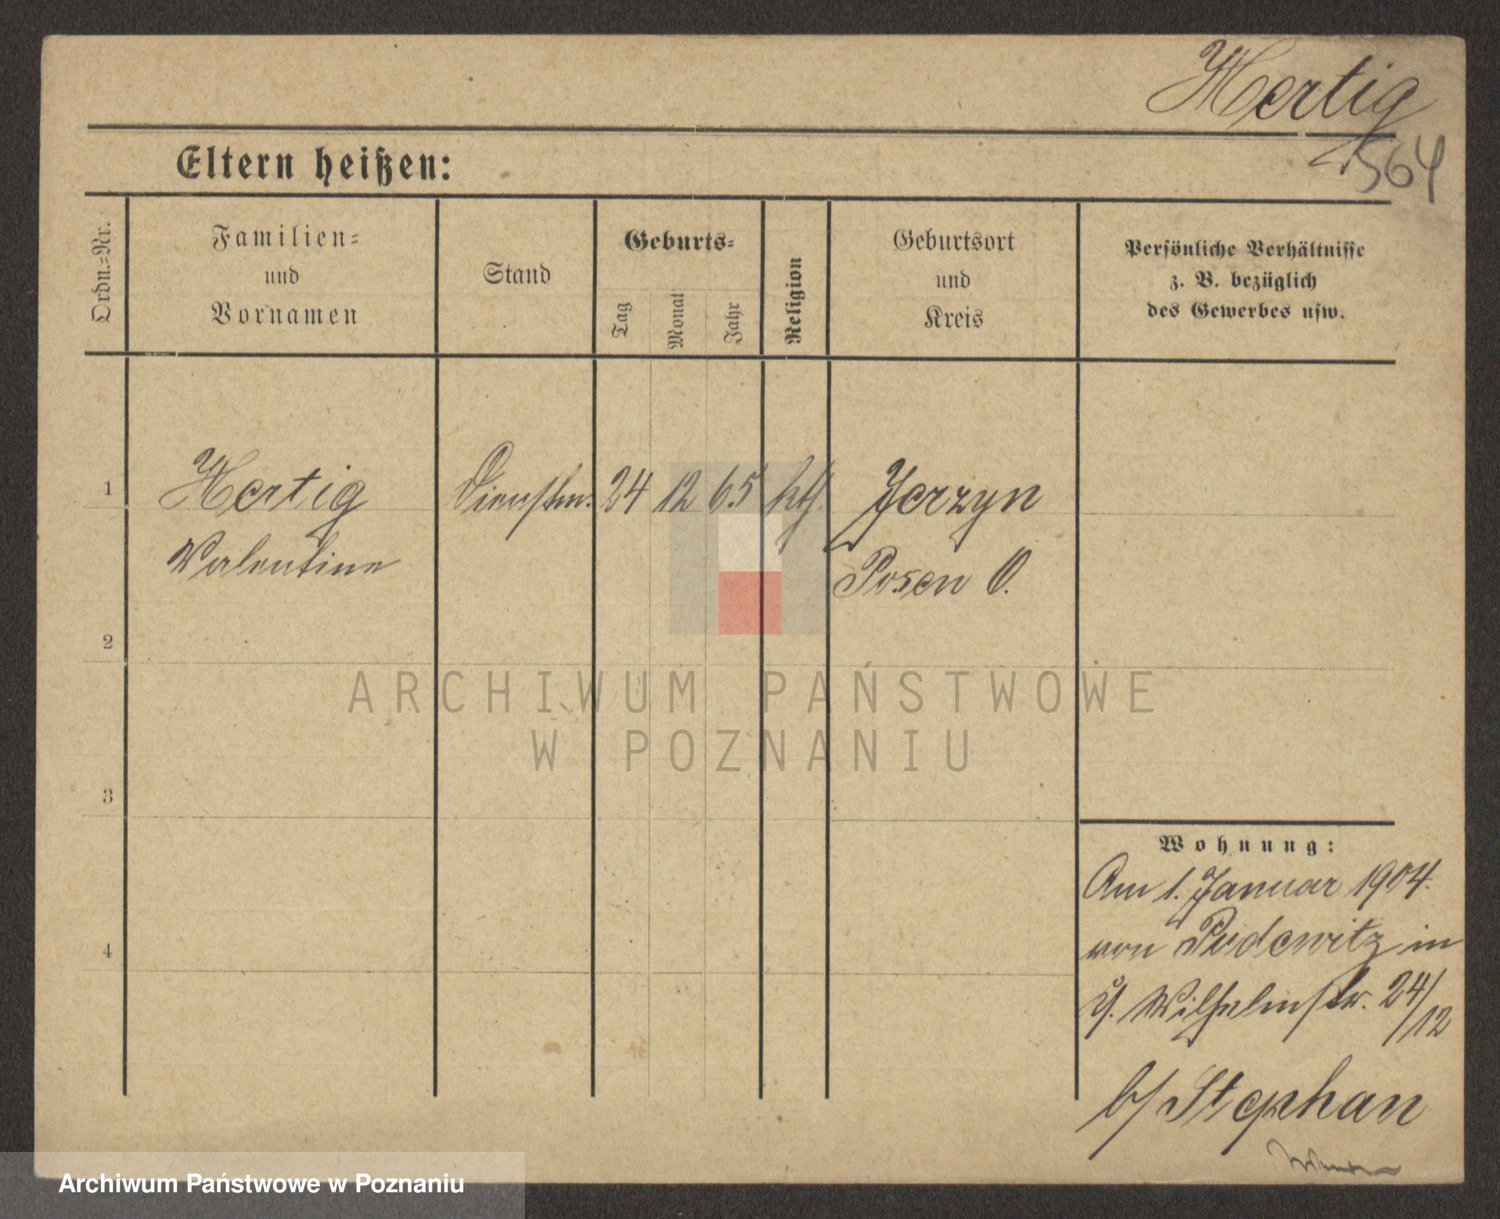 Hertig
564
Eltern heißen:
Ordn.=Nr.
Familien=
und
Vornamen
Stand
Geburts=
Tag
Monat
Jahr
Religion
Geburtsort
und
Kreis
Persönliche Verhältnisse
z. B. bezüglich
des Gewerbes usw.
1
Hertig
Valentine
Dienstm.
24
12
65
kth.
Jerzyn
Posen O.
2
ARCHIWUM PAŃSTWOWE
W POZNANIU
3
Wohnung:
Am 1. Januar 1904.
von Pudewitz in
Wilhelmstr. 24/12
4
b/ Stephan
Archiwum Państwowe w Poznaniu